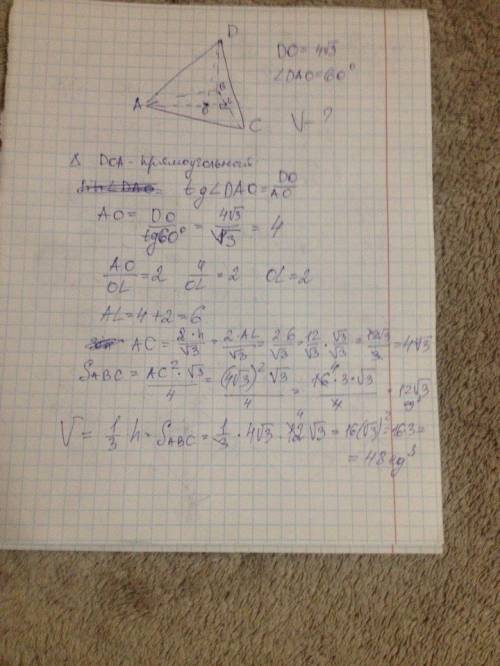 D
DO = 4√3
∠DAO = 60°
A
B
C
V - ?
Δ DOA - прямоугольный
tg∠DAO = DO/AO
AO = DO/tg60° = 4√3/√3 = 4
AO/OL = 2 4/OL = 2 OL = 2
AL = 4 + 2 = 6
AC = 2·h/√3 = 2·AL/√3 = 2·6/√3 = 12/√3 · √3/√3 = 12√3/3 = 4√3
S_ABC = AC²·√3/4 = (4√3)²·√3/4 = 16·3·√3/4 = 12√3
V = 1/3 · h · S_ABC = 1/3 · 4√3 · 12√3 = 16(√3)² = 16·3 =
= 48 ед³